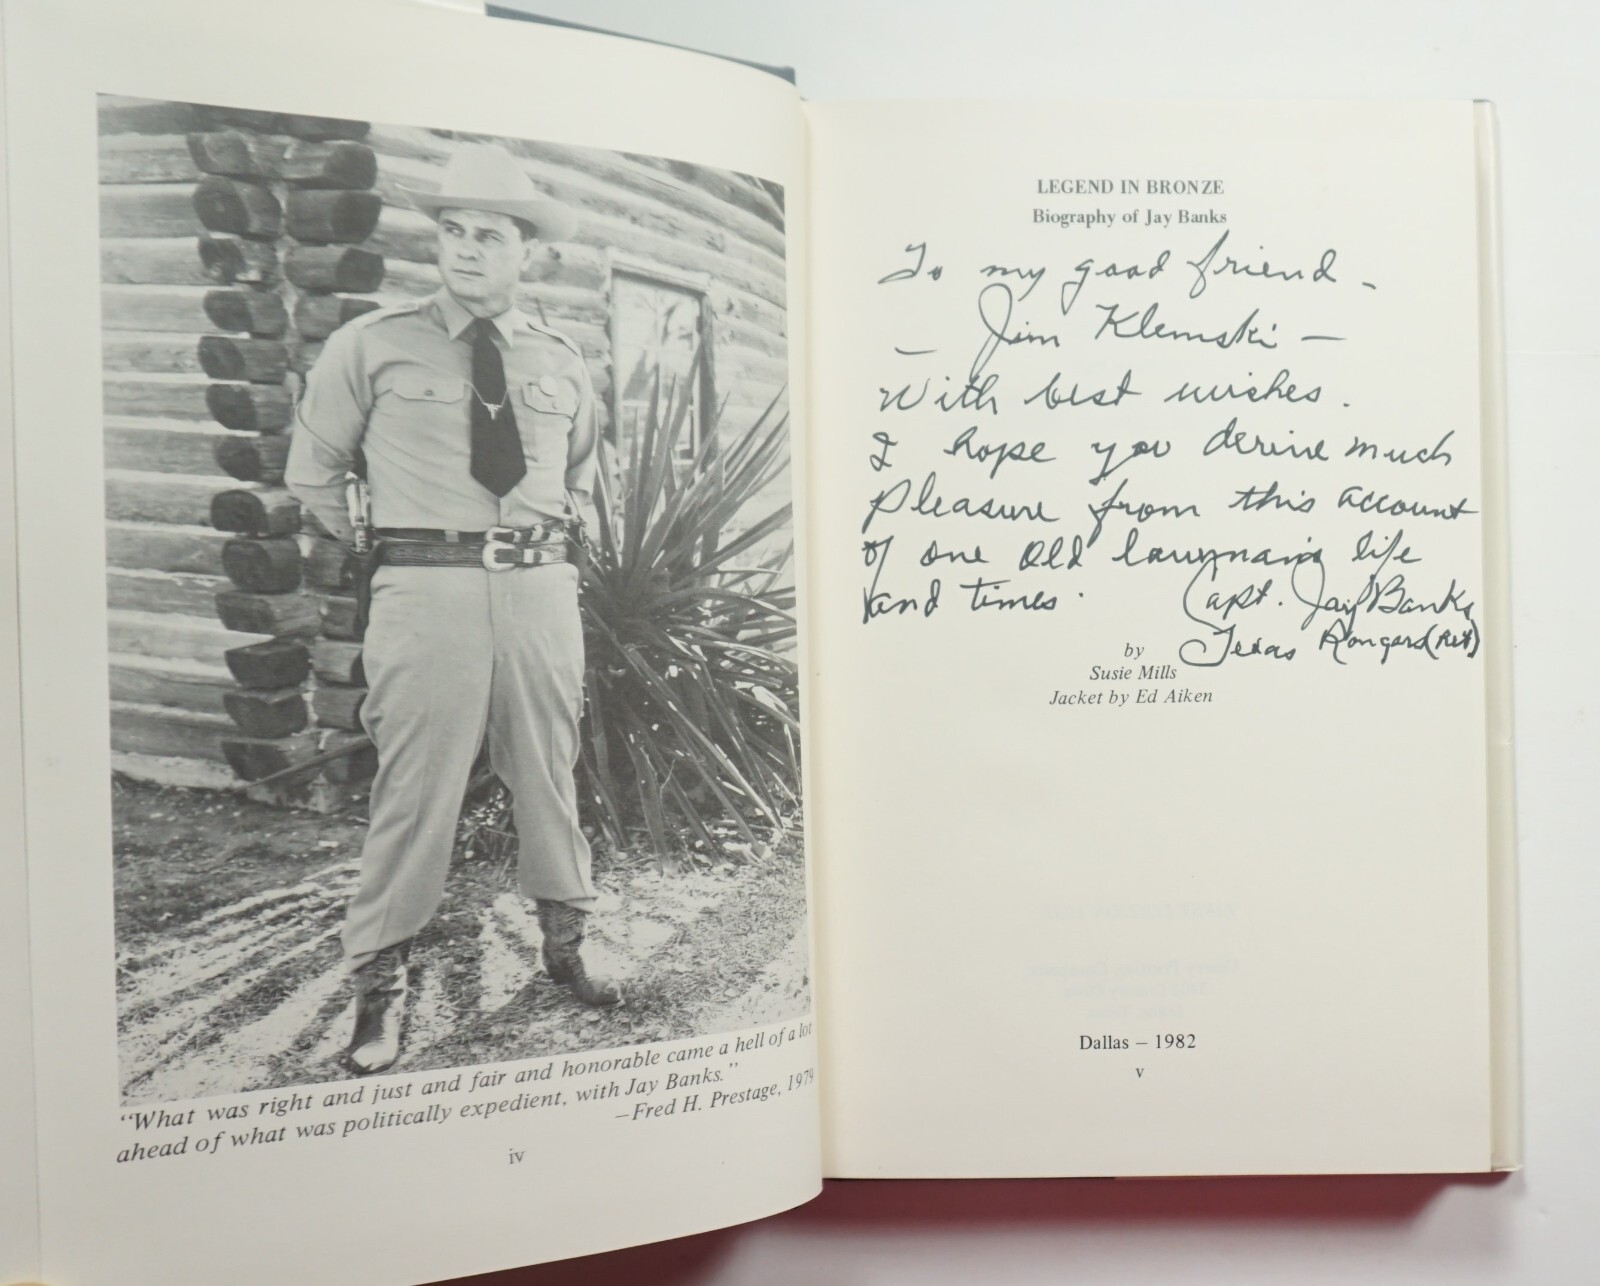 "What was right and just and fair and honorable came a hell of a lot
ahead of what was politically expedient, with Jay Banks."
—Fred H. Prestage, 1979
iv
LEGEND IN BRONZE
Biography of Jay Banks
To my good friend -
- Jim Klemski -
With best wishes.
I hope you derive much
pleasure from this account
of one old lawman's life
and times.
Capt. Jay Banks
Texas Rangers (Ret)
by
Susie Mills
Jacket by Ed Aiken
Dallas – 1982
v